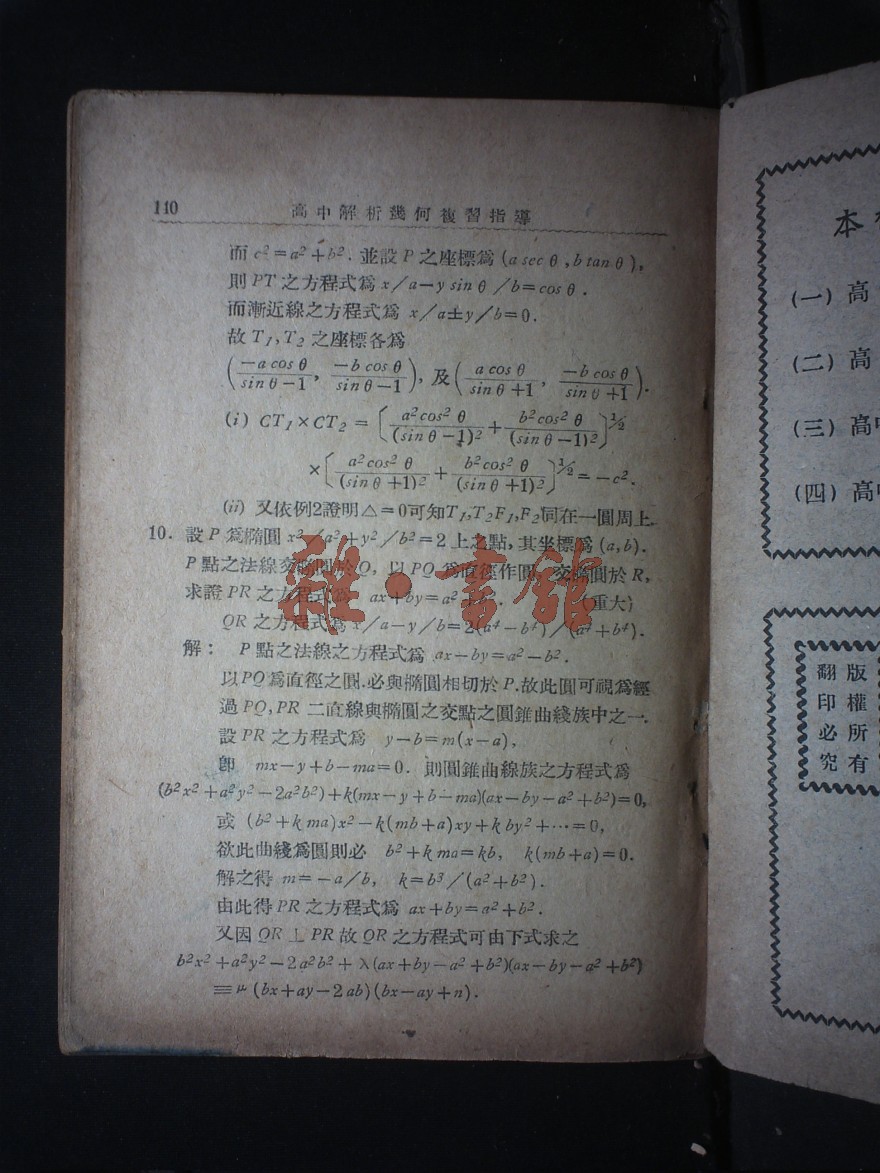 110 高中解析幾何複習指導
而 c²=a²+b². 並設 P 之座標爲 (a sec θ, b tan θ),
則 PT 之方程式爲 x/a−y sin θ/b=cos θ.
而漸近線之方程式爲 x/a±y/b=0.
故 T₁,T₂ 之座標各爲
(−a cos θ/sin θ−1, −b cos θ/sin θ−1), 及 (a cos θ/sin θ+1, −b cos θ/sin θ+1).
(i) CT₁×CT₂ = [a²cos²θ/(sin θ−1)² + b²cos²θ/(sin θ−1)²]^½
×[a²cos²θ/(sin θ+1)² + b²cos²θ/(sin θ+1)²]^½ = −c².
(ii) 又依例2證明△=0可知T₁,T₂F₁,F₂同在一圓周上.
10. 設 P 爲橢圓 x²/a²+y²/b²=2 上之點, 其坐標爲 (a,b).
P 點之法線交橢圓於Q, 以 PQ 爲直徑作圓, 交橢圓於 R,
求證 PR 之方程式爲 ax+by=a² (重大)
QR 之方程式爲 x/a−y/b=2(a⁴−b⁴)/(a⁴+b⁴).
解: P 點之法線之方程式爲 ax−by=a²−b².
以PQ爲直徑之圓.必與橢圓相切於 P.故此圓可視爲經
過 PQ, PR 二直線與橢圓之交點之圓錐曲綫族中之一.
設 PR 之方程式爲 y−b=m(x−a),
卽 mx−y+b−ma=0. 則圓錐曲線族之方程式爲
(b²x²+a²y²−2a²b²)+k(mx−y+b−ma)(ax−by−a²+b²)=0,
或 (b²+k ma)x²−k(mb+a)xy+k by²+⋯=0,
欲此曲綫爲圓則必 b²+k ma=kb, k(mb+a)=0.
解之得 m=−a/b, k=b³/(a²+b²).
由此得 PR 之方程式爲 ax+by=a²+b².
又因 QR⊥PR 故 QR 之方程式可由下式求之
b²x²+a²y²−2a²b²+λ(ax+by−a²+b²)(ax−by−a²+b²)
≡μ(bx+ay−2ab)(bx−ay+n).
雜·書館
本
(一) 高
(二) 高
(三) 高中
(四) 高中
版權所有
翻印必究